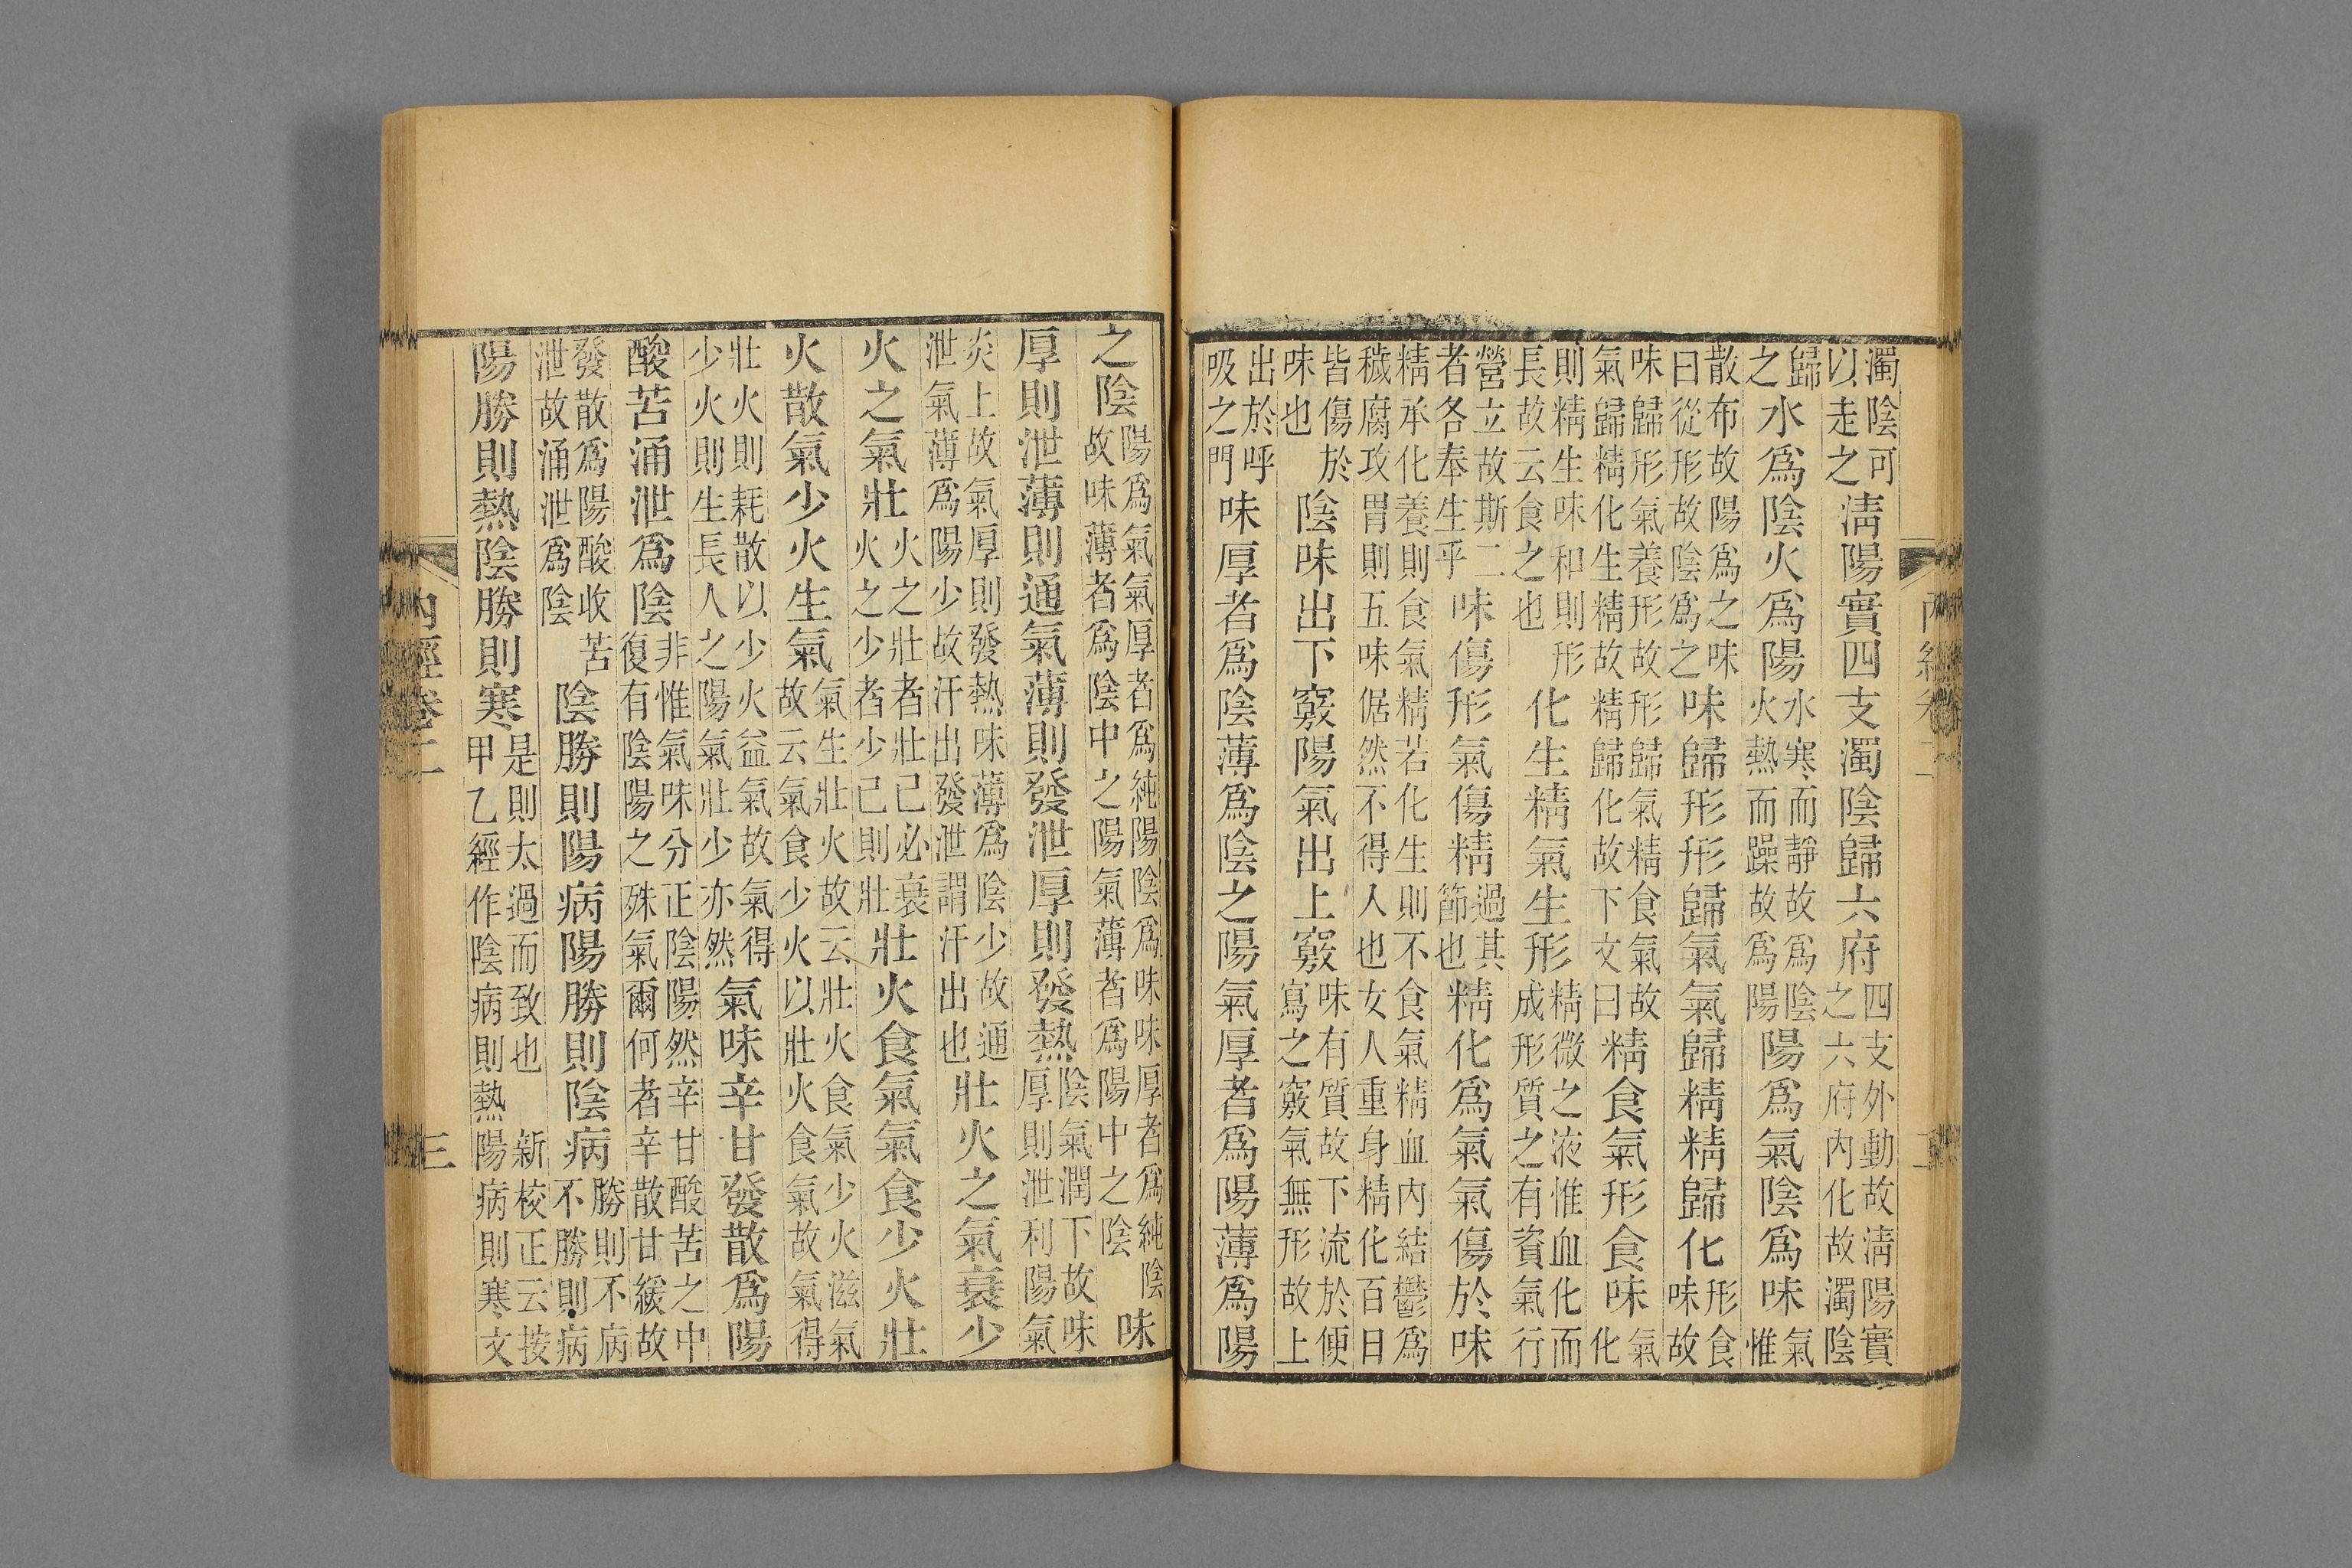 濁陰可以走之清陽實四支濁陰歸六府四支外動故清陽實之六府內化故濁陰
歸之水爲陰火爲陽水寒而靜故爲陰火熱而躁故爲陽陽爲氣陰爲味氣惟
散布故陽爲之味曰從形故陰爲之味歸形形歸氣氣歸精精歸化形食味故
味歸形氣養形故形歸氣精食氣故氣歸精化生精故精歸化故下文曰精食氣形食味氣化
則精生味和則形長故云食之也化生精氣生形精微之液惟血化而成形質之有資氣行
營立故斯二者各奉生乎味傷形氣傷精過其節也精化爲氣氣傷於味
精承化養則食氣精若化生則不食氣精血內結鬱爲穢腐攻胃則五味倨然不得人也女人重身精化百日
皆傷於味也陰味出下竅陽氣出上竅味有質故下流於便寫之竅氣無形故上
出於呼吸之門味厚者爲陰薄爲陰之陽氣厚者爲陽薄爲陽
之陰陽爲氣氣厚者爲純陽陰爲味味厚者爲純陰故味薄者爲陰中之陽氣薄者爲陽中之陰味
厚則泄薄則通氣薄則發泄厚則發熱陰氣潤下故味厚則泄利陽氣
炎上故氣厚則發熱味薄爲陰少故通泄氣薄爲陽少故汗出發泄謂汗出也壯火之氣衰少
火之氣壯火之壯者壯已必衰火之少者少已則壯壯火食氣氣食少火壯
火散氣少火生氣氣生壯火故云壯火食氣少火滋氣故云氣食少火以壯火食氣故氣得
壯火則耗散以少火益氣故氣得少火則生長人之陽氣壯少亦然氣味辛甘發散爲陽
酸苦涌泄爲陰非惟氣味分正陰陽然辛甘酸苦之中復有陰陽之殊氣爾何者辛散甘緩故
發散爲陽酸收苦泄故涌泄爲陰陰勝則陽病陽勝則陰病勝則不病不勝則病
陽勝則熱陰勝則寒是則太過而致也新校正云按甲乙經作陰病則熱陽病則寒文
內經卷二 三